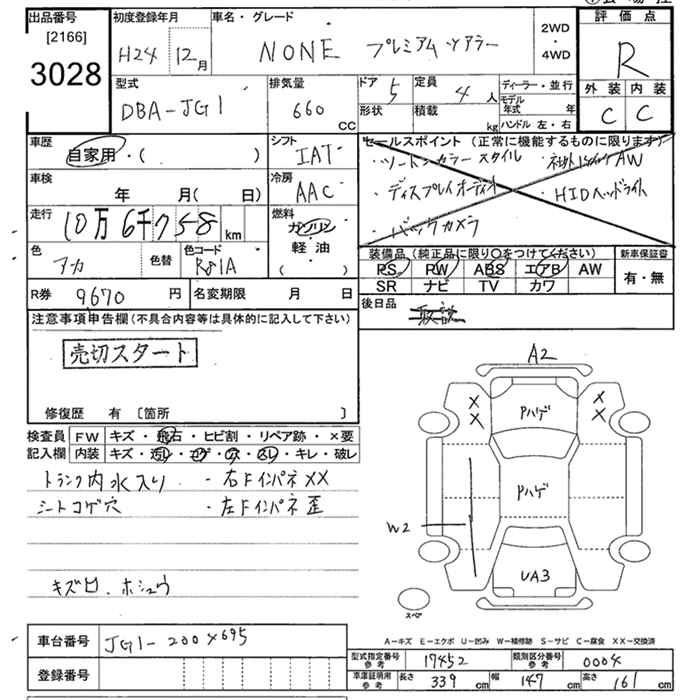 出品番号
[2166]
3028
初度登録年月
H24 12月
車名・グレード
NONE プレミアム ツアラー
2WD
・
4WD
評価点
R
外装 内装
C C
型式
DBA-JG1
排気量
660
CC
ドア 5
定員 4人
形状
積載 kg
ディーラー・並行
モデル年式 年
ハンドル 左・右
車歴
自家用・( )
シフト
IAT
車検
年 月( 日)
冷房
AAC
走行
10万6千758 km
燃料
ガソリン
軽油
( )
色
アカ
色替
色コード
R81A
R券 9670 円
名変期限 月 日
セールスポイント (正常に機能するものに限ります)
・ツートンカラースタイル
・ディスプレイオーディオ
・バックカメラ
AW
・HIDヘッドライト
装備品 (純正品に限り〇をつけてください)
PS PW ABS エアB AW
SR ナビ TV カワ
新車保証書
有・無
後日品
取説
注意事項申告欄(不具合内容等は具体的に記入して下さい)
売切スタート
修復歴 有 〔箇所 〕
検査員 記入欄
FW キズ・飛石・ヒビ割・リペア跡・×要
内装 キズ・汚レ・コゲ・穴・スレ・キレ・破レ
トランク内水入り ・右FインパネXX
シートコゲ穴 ・左Fインパネ歪
キズ凹 ホシュウ
A2
XX
XX
Pハゲ
Pハゲ
W2
UA3
スペア
A-キズ E-エクボ U-凹み W-補修跡 S-サビ C-腐食 XX-交換済
車台番号 JG1-2004695
登録番号
型式指定番号 参考 17452
類別区分番号 参考 0004
車庫証明用 参考 長さ 339 cm 幅 147 cm 高さ 161 cm